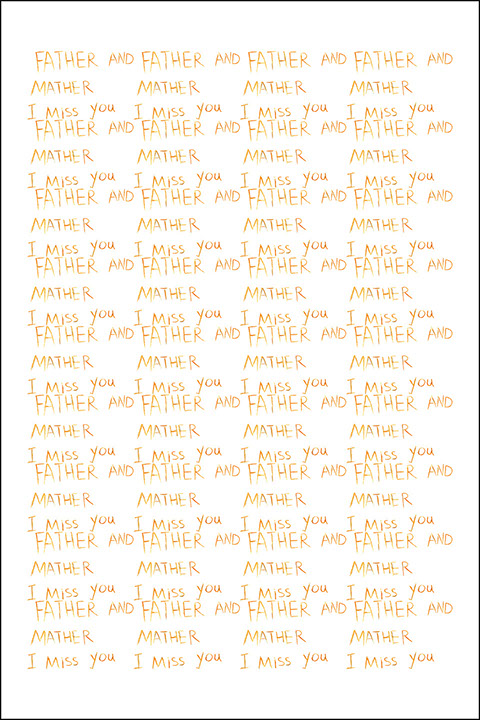 FATHER AND FATHER AND FATHER AND FATHER AND
MATHER MATHER MATHER MATHER
I MISS YOU I MISS YOU I MISS YOU I MISS YOU
FATHER AND FATHER AND FATHER AND FATHER AND
MATHER MATHER MATHER MATHER
I MISS YOU I MISS YOU I MISS YOU I MISS YOU
FATHER AND FATHER AND FATHER AND FATHER AND
MATHER MATHER MATHER MATHER
I MISS YOU I MISS YOU I MISS YOU I MISS YOU
FATHER AND FATHER AND FATHER AND FATHER AND
MATHER MATHER MATHER MATHER
I MISS YOU I MISS YOU I MISS YOU I MISS YOU
FATHER AND FATHER AND FATHER AND FATHER AND
MATHER MATHER MATHER MATHER
I MISS YOU I MISS YOU I MISS YOU I MISS YOU
FATHER AND FATHER AND FATHER AND FATHER AND
MATHER MATHER MATHER MATHER
I MISS YOU I MISS YOU I MISS YOU I MISS YOU
FATHER AND FATHER AND FATHER AND FATHER AND
MATHER MATHER MATHER MATHER
I MISS YOU I MISS YOU I MISS YOU I MISS YOU
FATHER AND FATHER AND FATHER AND FATHER AND
MATHER MATHER MATHER MATHER
I MISS YOU I MISS YOU I MISS YOU I MISS YOU
FATHER AND FATHER AND FATHER AND FATHER AND
MATHER MATHER MATHER MATHER
I MISS YOU I MISS YOU I MISS YOU I MISS YOU